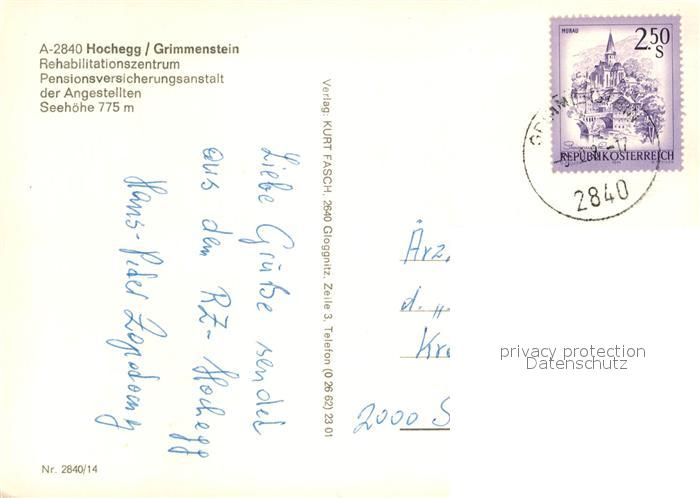 A-2840 Hochegg / Grimmenstein
Rehabilitationszentrum
Pensionsversicherungsanstalt
der Angestellten
Seehöhe 775 m
MURAU
2.50
S
REPUBLIK ÖSTERREICH
2840
Verlag: KURT FASCH, 2640 Gloggnitz, Zeile 3, Telefon (0 26 62) 23 01
Liebe Grüße sendet
aus dem RZ-Hochegg
Hans-Peter
Ärz.
d. „
Kr
2000 S
privacy protection
Datenschutz
Nr. 2840/14